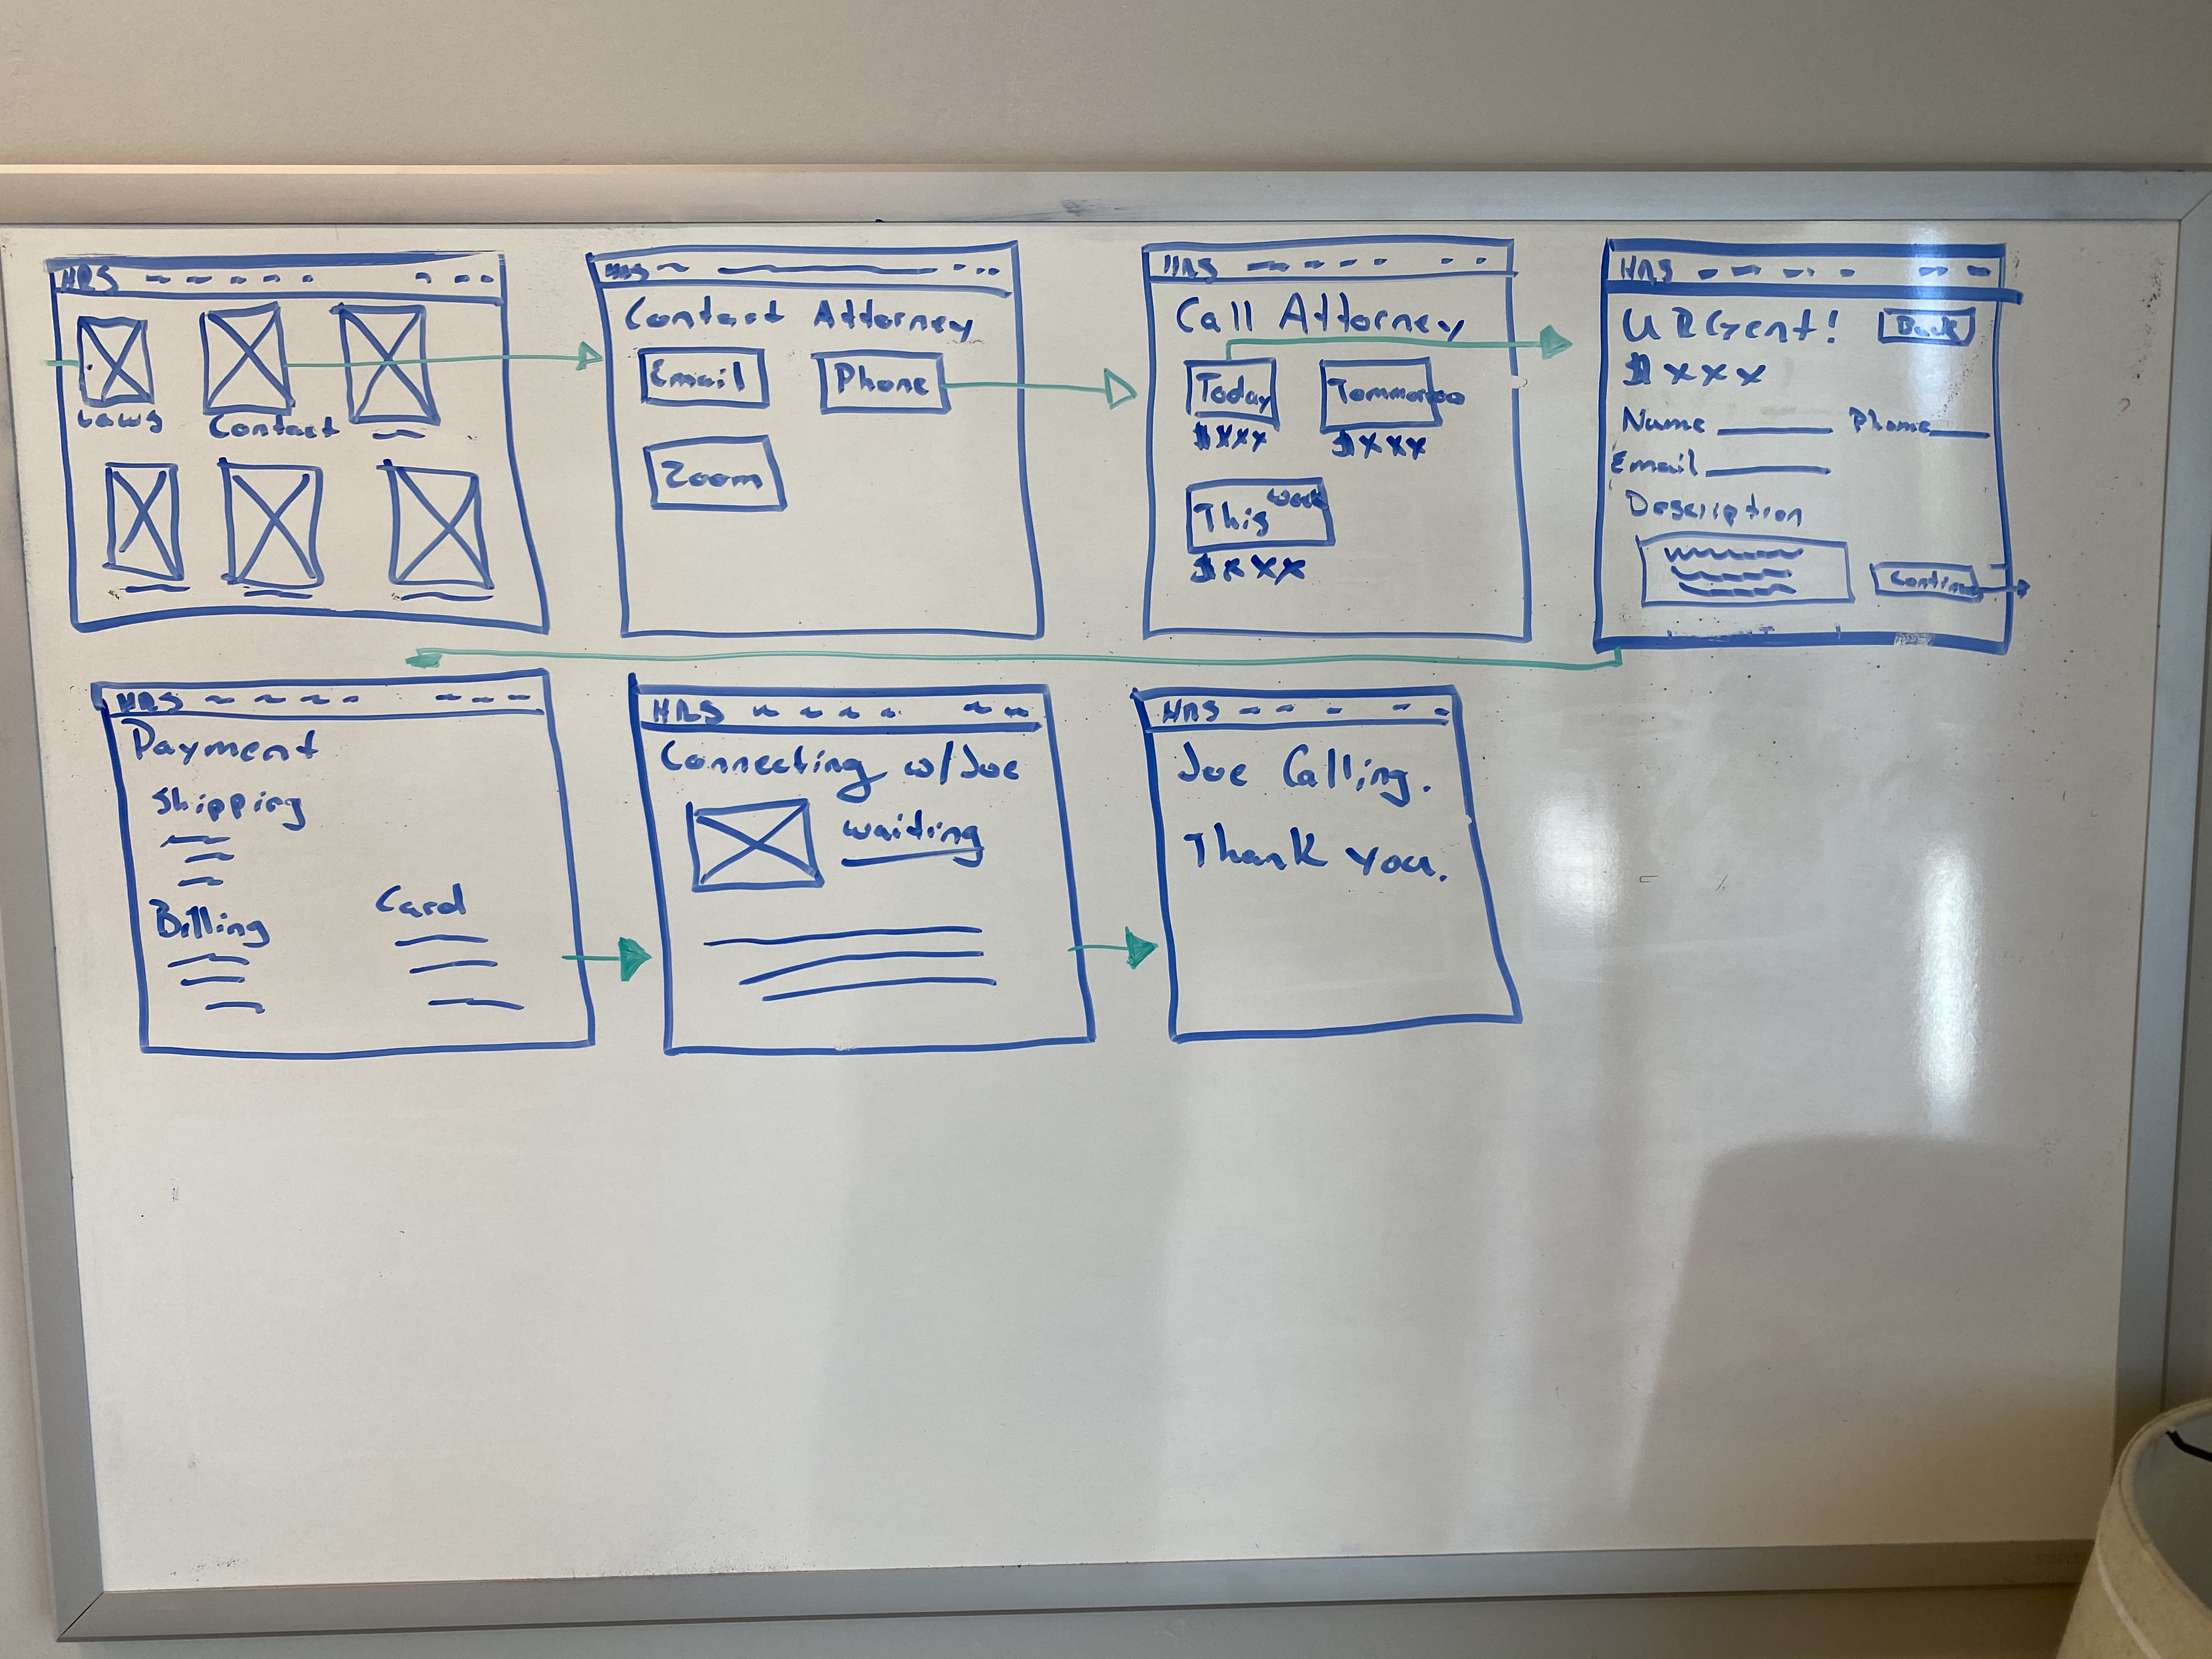 HRS
Laws
Contact
HRS
Contact Attorney
Email
Phone
Zoom
HRS
Call Attorney
Today
$XXX
Tommoroo
$XXX
This week
$XXX
HRS
URGent!
Back
$XXX
Name
Phone
Email
Description
HRS
Payment
Shipping
Billing
Card
HRS
Connecting w/Joe
waiting
HRS
Joe Calling.
Thank you.